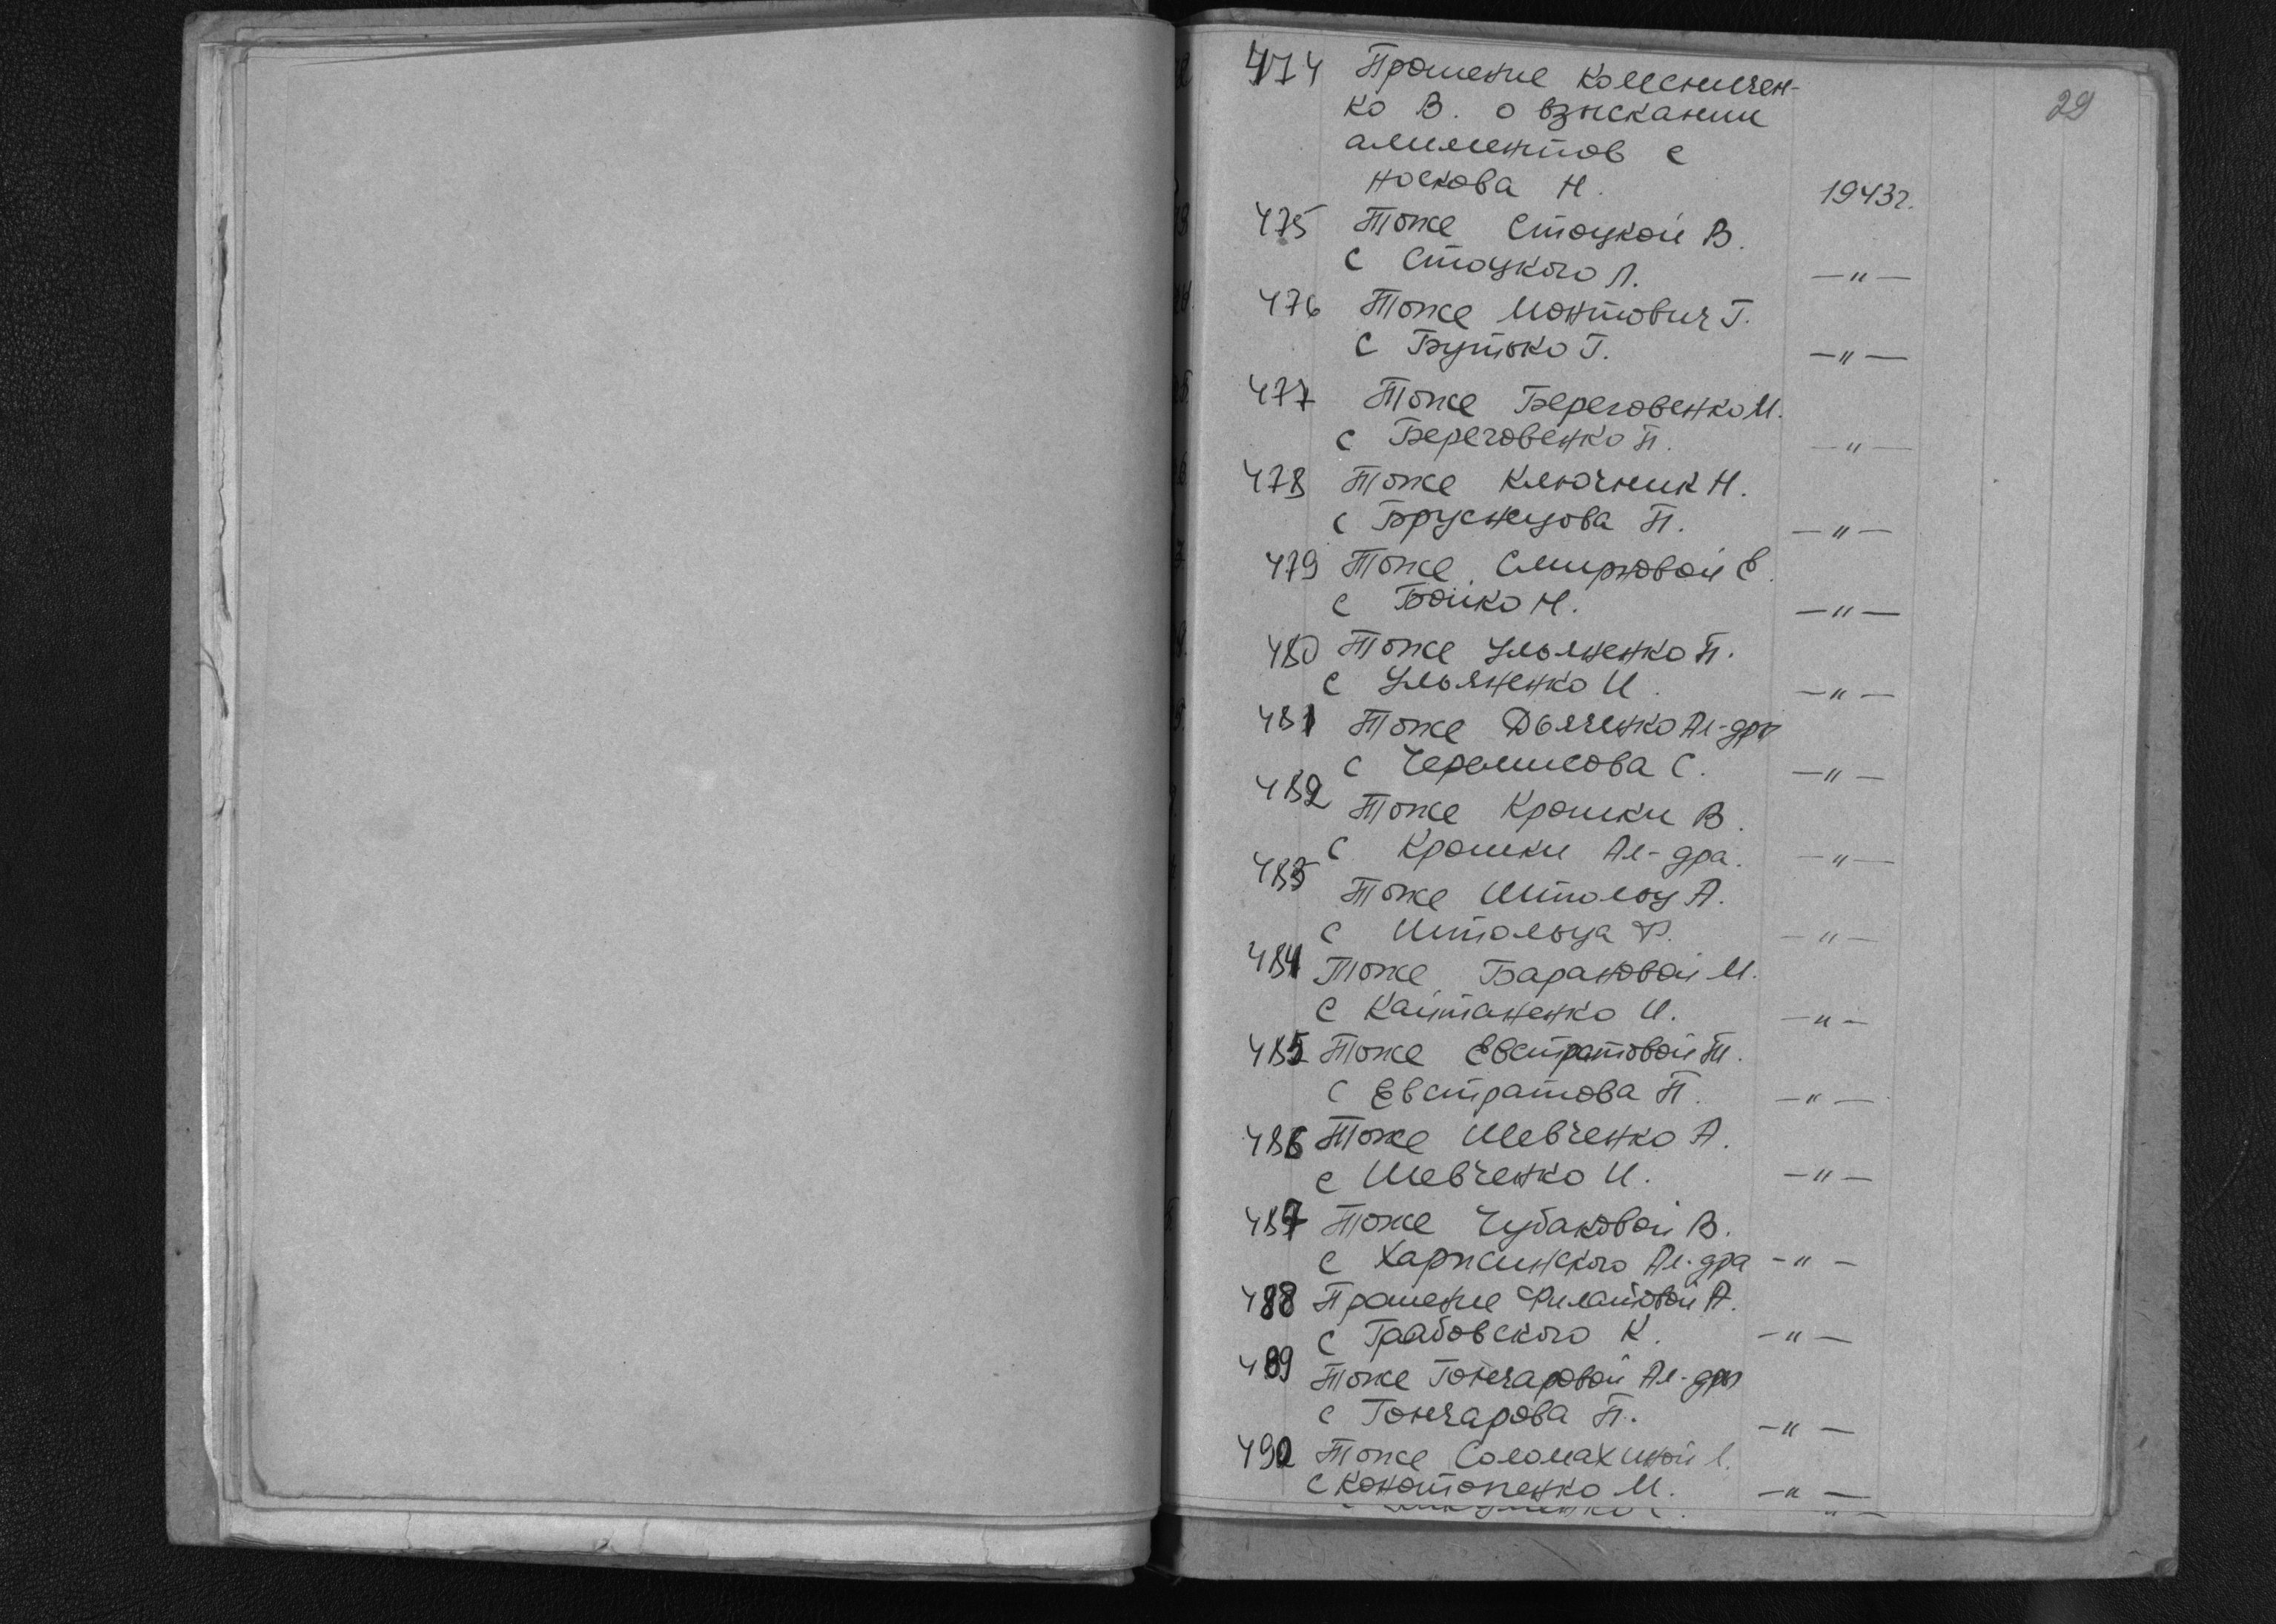 29
474 Прошение Колесничен-
ко В. о взыскании
алиментов с
Носкова Н. 1943г.
475 Тоже Стоцкой В.
с Стоцкого Л. —"—
476 Тоже Монтович Г.
с Бутько Г. —"—
477 Тоже Береговенко М.
с Береговенко П. —"—
478 Тоже Ключник Н.
с Бруснецова П. —"—
479 Тоже Смирновой Е.
с Бойко Н. —"—
480 Тоже Ульяненко П.
с Ульяненко И. —"—
481 Тоже Дьяченко Ал-дры
с Черемисова С. —"—
482 Тоже Крошки В.
с Крошки Ал-дра. —"—
483 Тоже Штольц А.
с Штольца Ф. —"—
484 Тоже Барановой М.
с Кайтаненко И. —"—
485 Тоже Евстратовой Т.
с Евстратова П. —"—
486 Тоже Шевченко А.
с Шевченко И. —"—
487 Тоже Чубаковой В.
с Харжинского Ал-дра —"—
488 Прошение Филатовой А.
с Граабовского К. —"—
489 Тоже Гончаровой Ал-дры
с Гончарова П. —"—
490 Тоже Соломахиной
с Конотопенко М. —"—